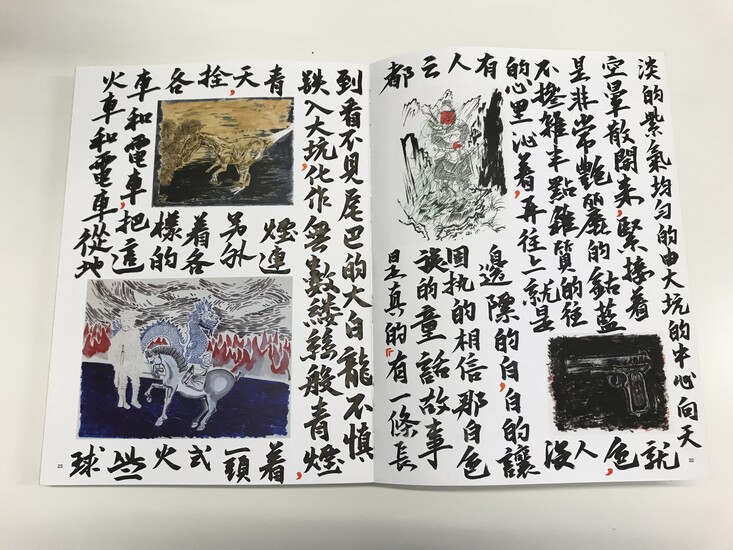 淡的紫氣均勻的由大坑的中心向天
空暈散開來,緊接着就
是非常艷麗的鈷藍色,
不摻雜半點雜質的往人
的心里沁着,再往上就是沒
有邊際的白,白的讓
人固执的相信那白色
云談的童話故事
都是真的,有一條長
22
到看不見尾巴的大白龍不慎
跌入大坑,化作無數縷絲般青煙,
青煙連着
天,另外一頭
拴着各式
各樣的火
車和電車,把這些
火車和電車從地球
23